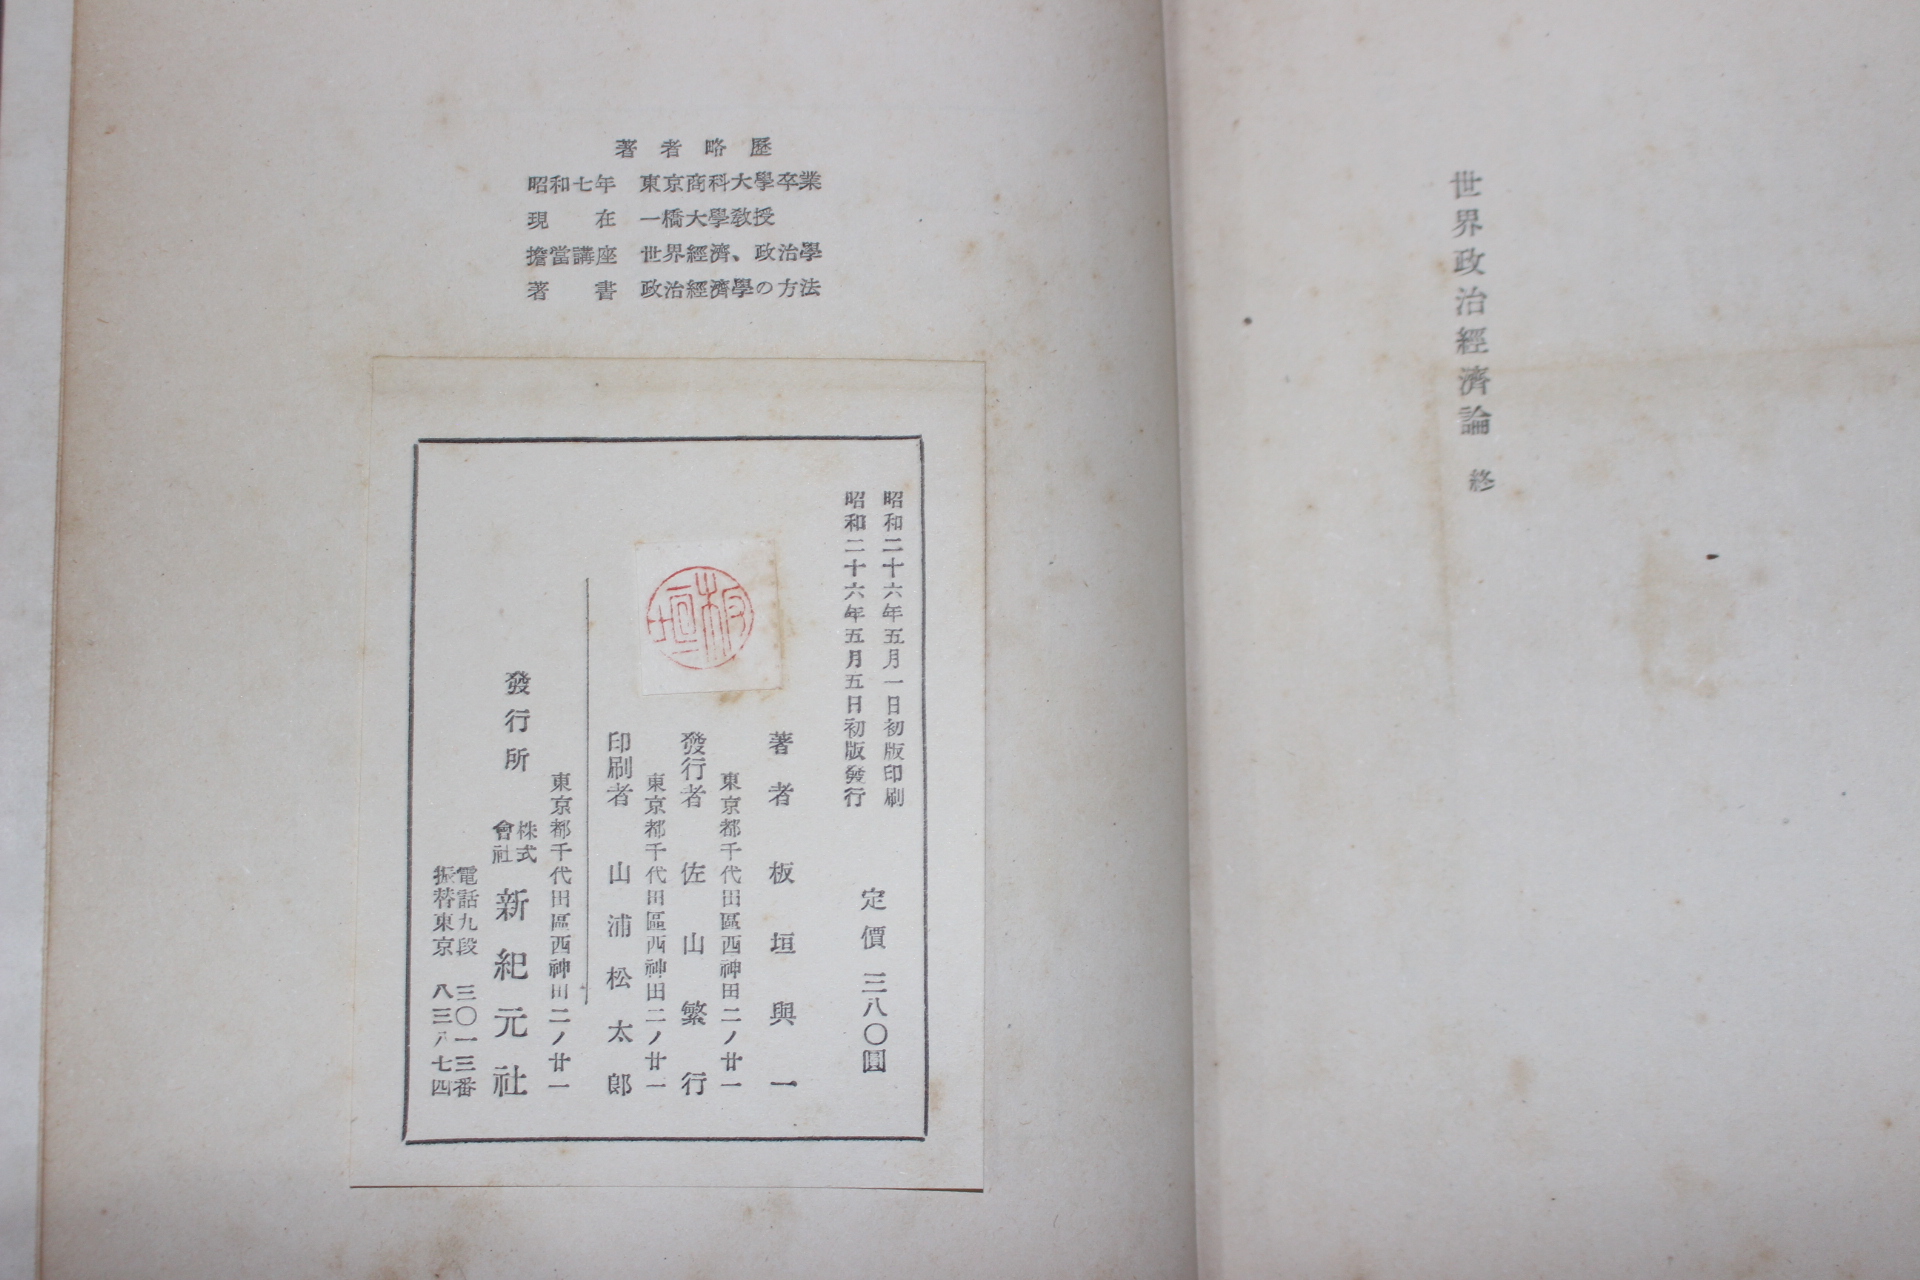 世界政治經濟論 終
著者略歷
昭和七年 東京商科大學卒業
現在 一橋大學教授
擔當講座 世界經濟、政治學
著書 政治經濟學の方法
昭和二十六年五月一日初版印刷
昭和二十六年五月五日初版發行
定價 三八〇圓
板垣
著者 板垣與一
東京都千代田區西神田二ノ廿一
發行者 佐山繁行
東京都千代田區西神田二ノ廿一
印刷者 山浦松太郎
東京都千代田區西神田二ノ廿一
發行所 株式會社 新紀元社
電話九段 三〇一三番
振替東京 八三八七四